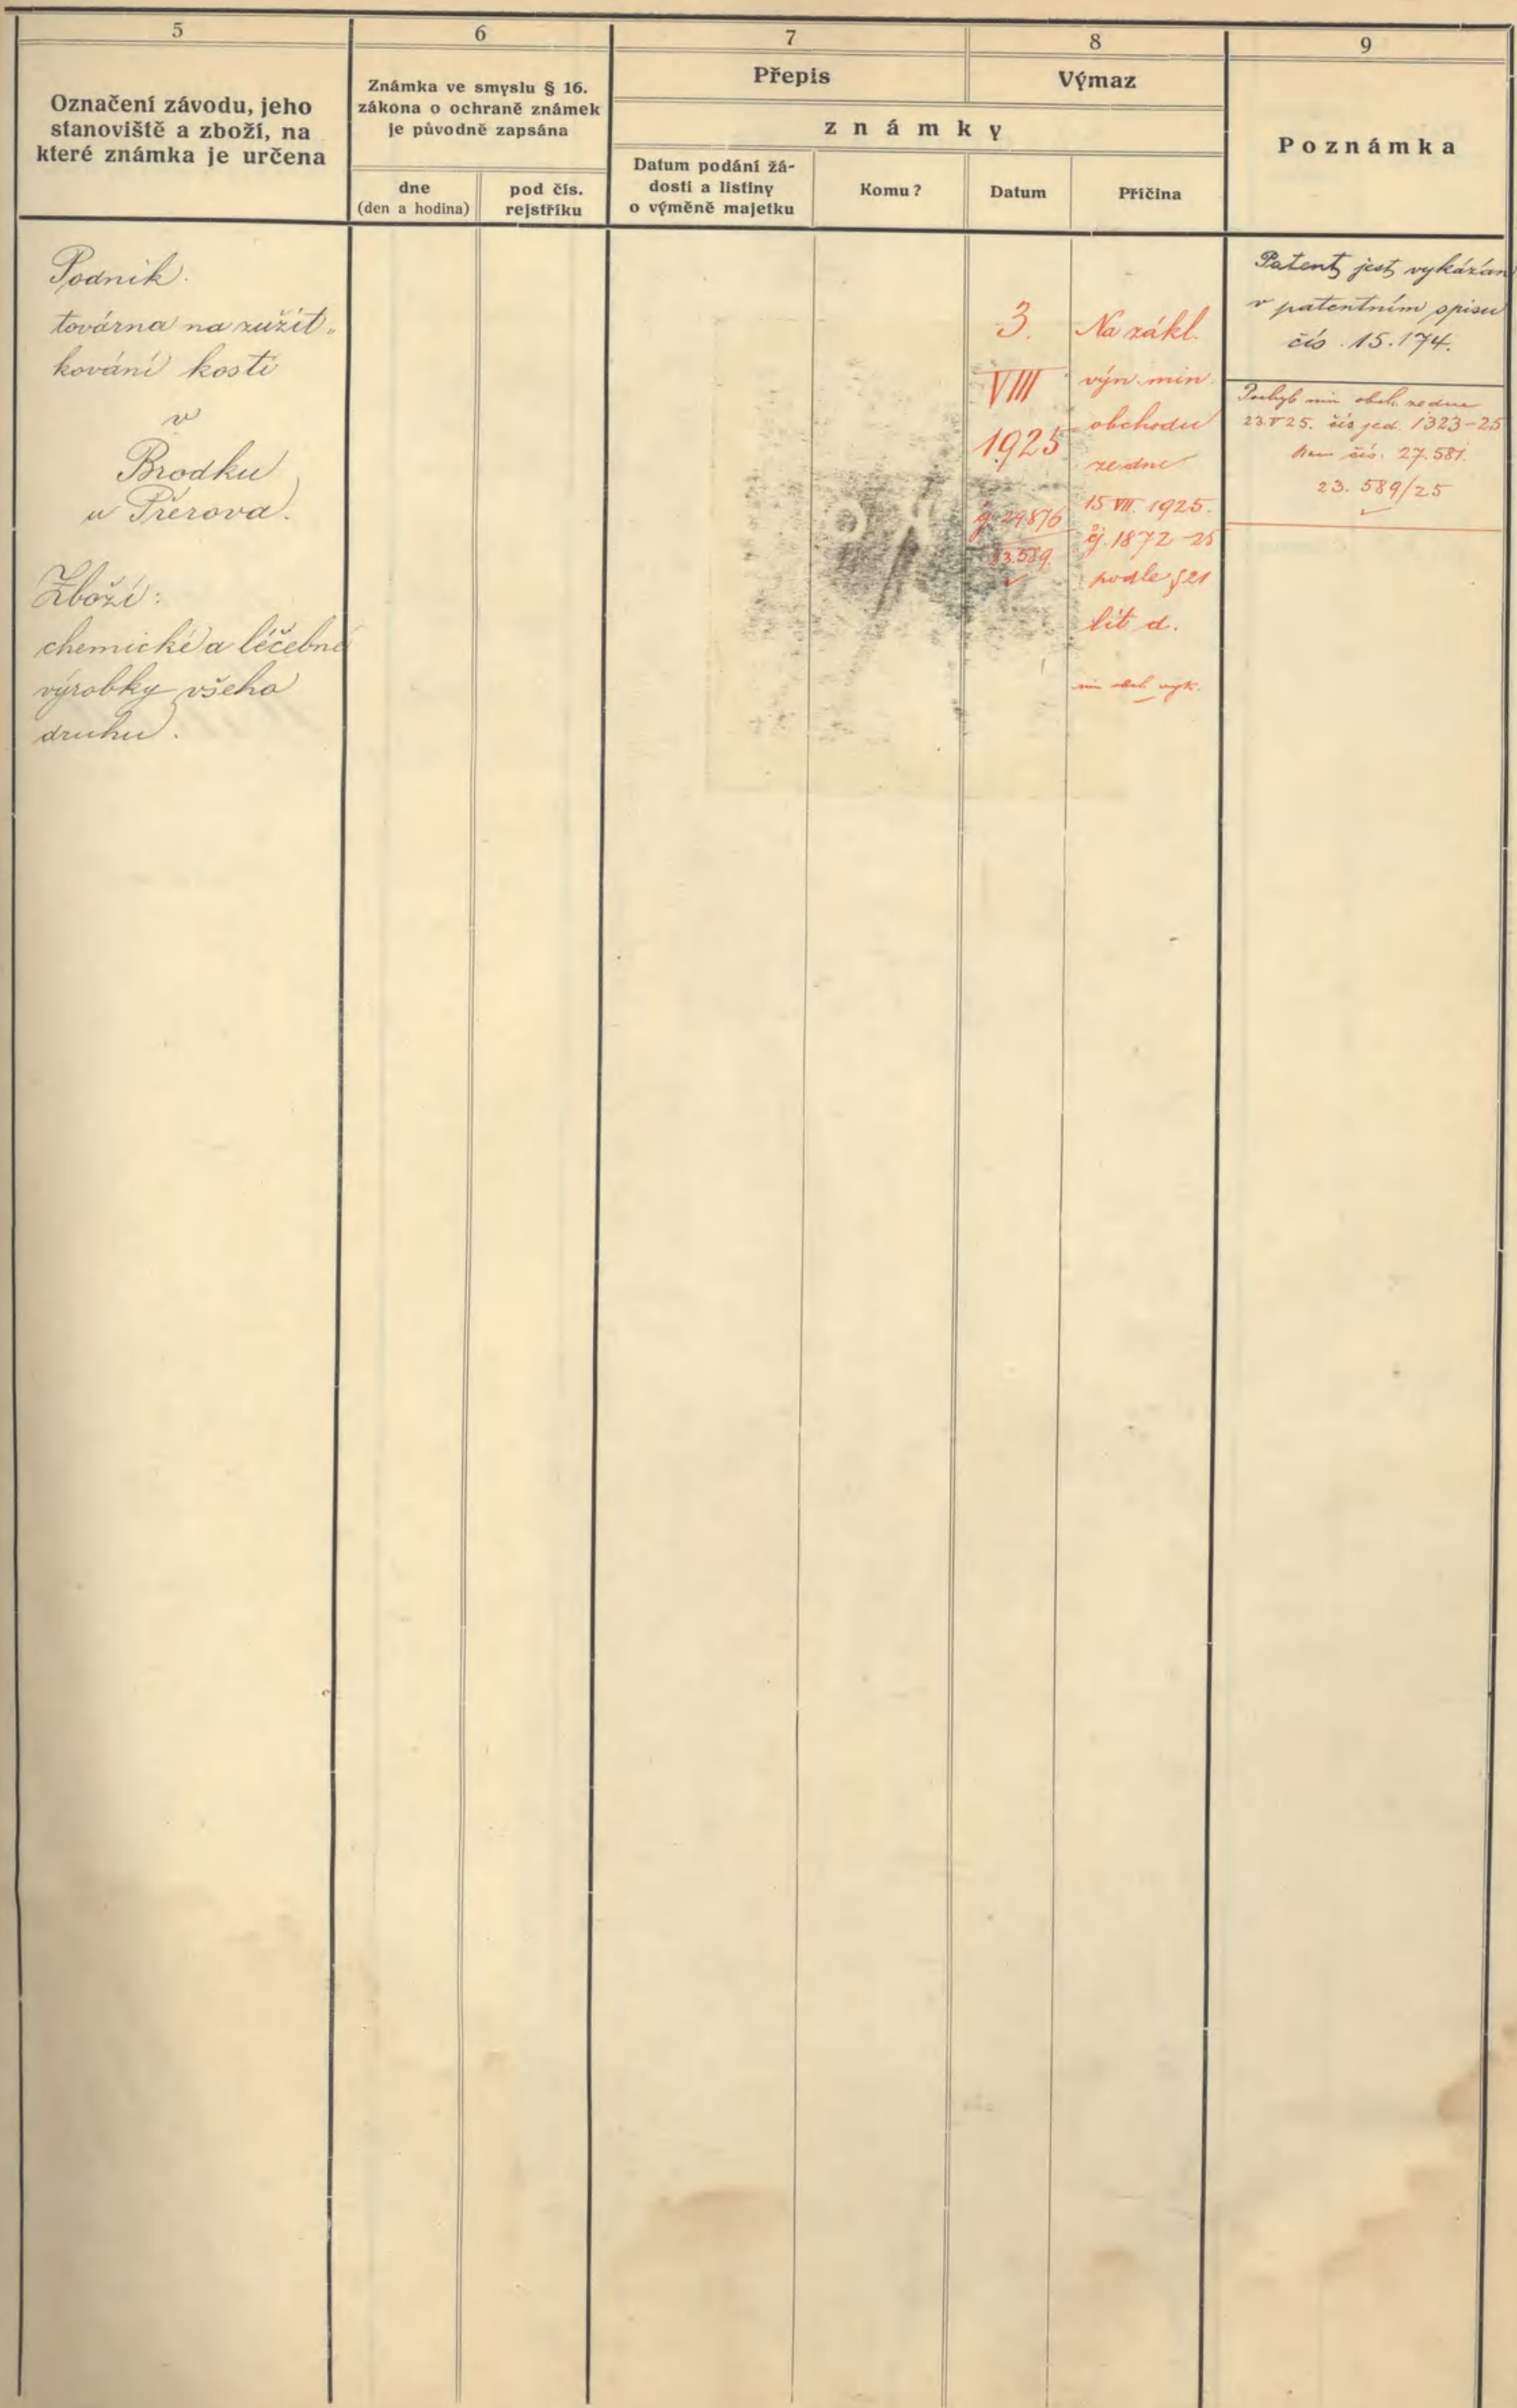 5
Označení závodu, jeho
stanoviště a zboží, na
které známka je určena
6
Známka ve smyslu § 16.
zákona o ochraně známek
je původně zapsána
dne
(den a hodina)
pod čís.
rejstříku
7
Přepis
8
Výmaz
známky
Datum podání žá-
dosti a listiny
o výměně majetku
Komu?
Datum
Příčina
9
Poznámka
Podnik.
továrna na zužit„
kování kostí
v
Brodku
u Přerova.
Zboží:
chemické a léčebné
výrobky všeho
druhu.
3.
VIII
1925
čj. 29876
23.589.
Na zákl.
výn. min.
obchodu
ze dne
15 VII. 1925.
čj. 1872-25
podle § 21
lit d.
min obch
Patent jest vykázán
v patentním spisu
čís. 15.174.
min obch. ze dne
23.V 25. čís jed. 1323-25
čís. 27.581.
23.589/25